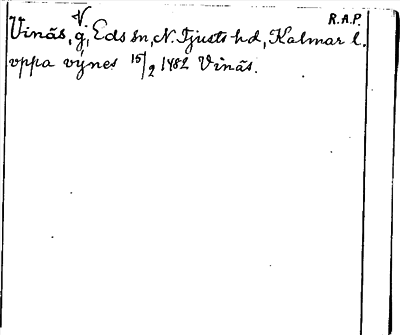 R.A.P.
V
Vinäs, g, Eds sn, N. Tjusts hd, Kalmar l.
vppa vynes 15/2 1482 Vinäs.